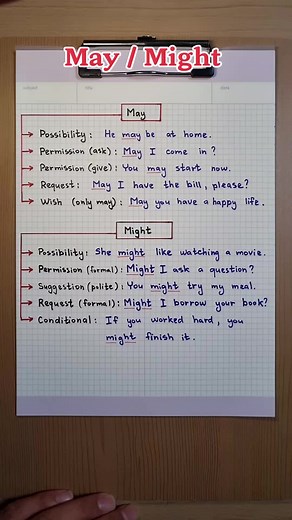 May / Might
May
Possibility : He may be at home.
Permission (ask) : May I come in ?
Permission (give) : You may start now.
Request : May I have the bill, please?
Wish (only may) : May you have a happy life.
Might
Possibility : She might like watching a movie.
Permission (formal) : Might I ask a question?
Suggestion (polite) : You might try my meal.
Request (formal) : Might I borrow your book?
Conditional : If you worked hard, you
might finish it.